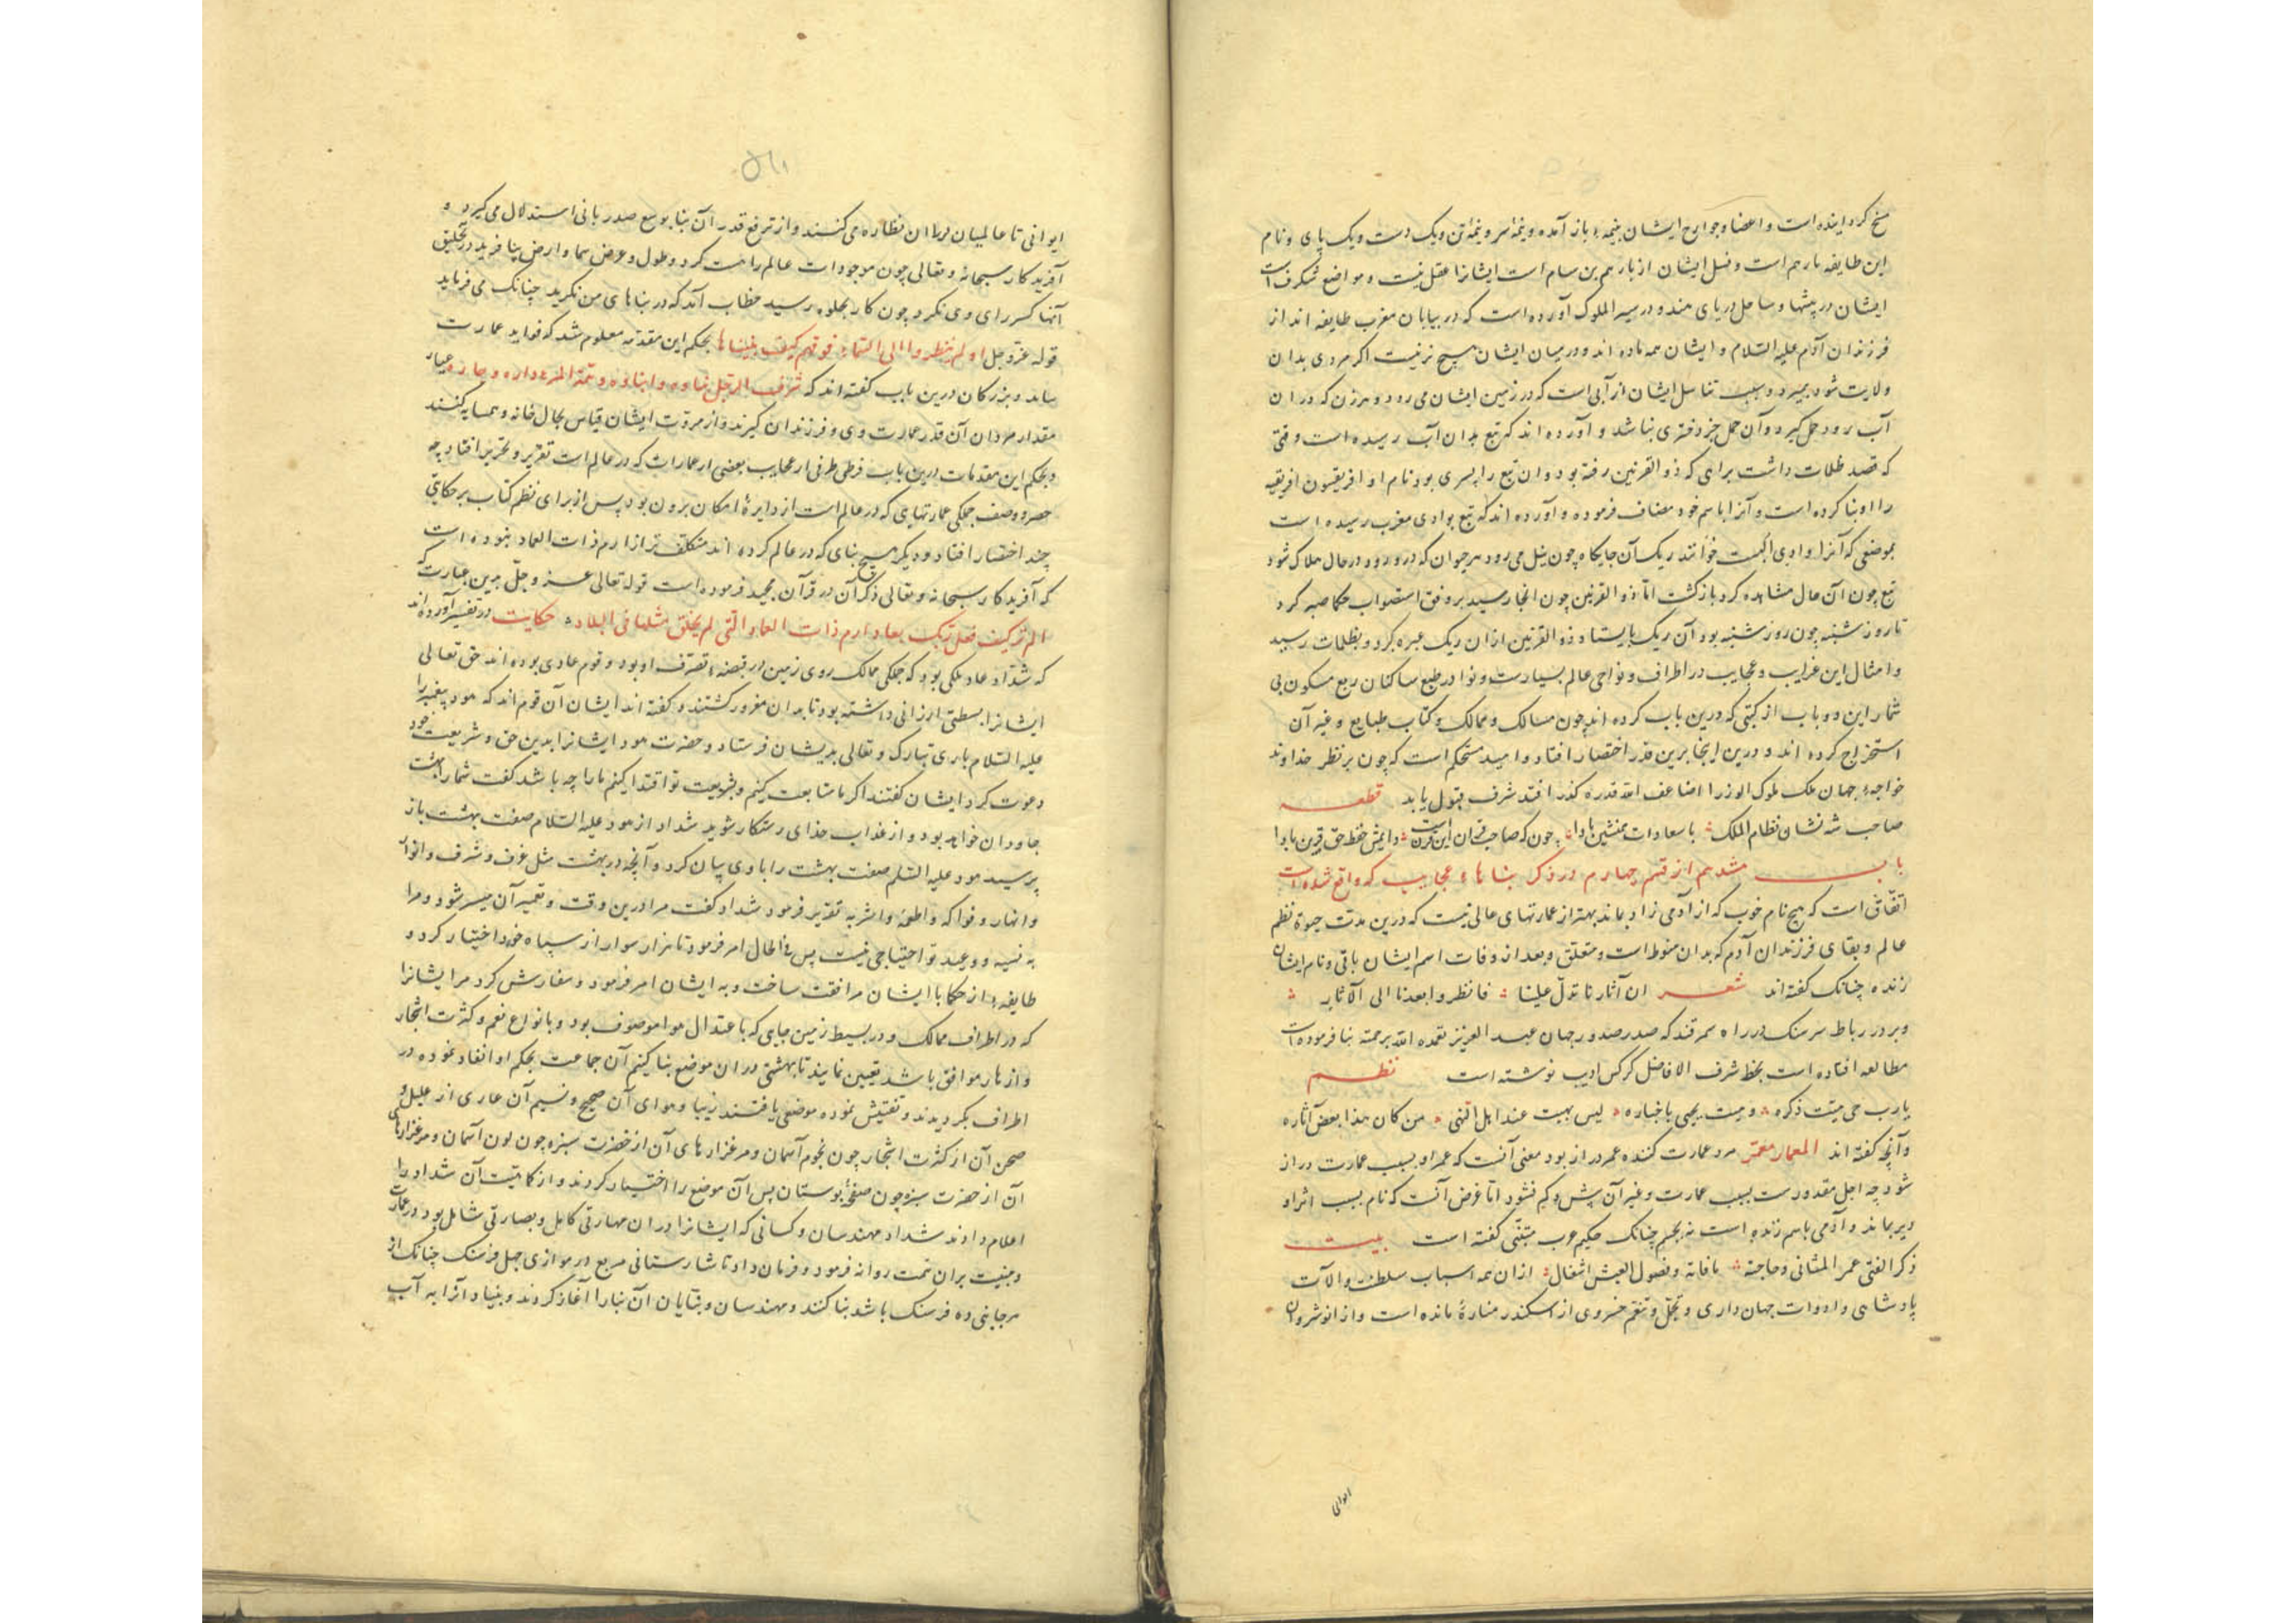 مسخ کردانیده است و اعضا و جوارح ایشان بنیمهٔ باز آمده و نیمهٔ سر و نیمهٔ تن و یک دست و یک پای و نام
این طایفه بارهم است و نسل ایشان از بارهم بن سام است ایشانرا عقل نیست و مواضع شکرف است
ایشان در بیشها و ساحل دریای هند و در سیر الملوک آورده است که در بیابان مغرب طایفه اند از
فرزندان آدم علیه السلام و ایشان همه ماده اند و در میان ایشان هیچ نر نیست اکر مردی بدان
ولایت شود بمیرد و سبب تناسل ایشان از آبی است که در زمین ایشان می رود و هر زن که در ان
آب رود حمل کیرد و آن حمل جز دختری نباشد و آورده اند که تبع بدان آب رسیده است وقتی
که قصد ظلمات داشت براهی که ذو القرنین رفته بود و ان تبع را پسری بود نام او افریقیون افریقیه
را او بنا کرده است و آنرا باسم خود مضاف فرموده و آورده اند که تبع بوادی مغرب رسیده است
بموضعی که آنرا وادی خوانند ریک آن جایکاه چون نیل می رود هر حیوان که در رود در حال هلاک شود
تبع چون آن حال مشاهده کرد باز کشت اما ذو القرنین چون انجا رسید بر وفق استصواب حکما صبر کرد
تا روز شنبه چون روز شنبه بود آن ریک بایستاد ذو القرنین ازان ریک عبره کرد و بظلمات رسید
و امثال این غرایب و عجایب در اطراف و نواحی عالم بسیارست و نوادر طبع ساکنان ربع مسکون بی
شمار این دو باب از کتبی که درین باب کرده اند چون مسالک و ممالک و کتاب طبایع و غیر آن
استخراج کرده اند و درین اینجا برین قدر اختصار افتاد و امید مستحکم است که چون بر نظر خداوند
خواجهٔ جهان ملک ملوک الوزرا ضاعف الله قدره کذر افتد شرف قبول یابد قطعه
صاحب شه نشان نظام الملک با سعادات همنشین بادا چون که صاحب قران این قرن است دایمش حفظ حق قرین بادا
باب هشدهم از قسم چهارم در ذکر بناهاء عجایب که واقع شده است
اتفاق است که هیچ نام خوب که از آدمی زاد بماند بهتر از عمارتهای عالی نیست که درین مدت حیوة نظم
عالم و بقای فرزندان آدم که بدان منوط است و متعلق و بعد از وفات اسم ایشان باقی و نام ایشان
زنده چنانک کفته اند شعر ان آثارنا تدل علینا فانظروا بعدنا الی الآثار
و بر در رباط سرسنک در راه سمرقند که صدر صدور جهان عبد العزیز تغمده الله برحمته بنا فرموده است
مطالعه افتاده است بخط شرف الافاضل کرکس ادیب نوشته است نظم
یا رب حی میت ذکره و میت یحیی باخباره لیس بمیت عند اهل النهی من کان هذا بعض آثاره
و آنچه کفته اند المعمار معمر مرد عمارت کننده عمر دراز بود معنی آنست که عمر او بسبب عمارت دراز
شود چه اجل مقدورست بسبب عمارت و غیر آن پس و کم نشود اما غرض آنست که نام بسبب اثر او
دیر بماند و آدمی باسم زنده است نه بجسم چنانک حکیم عرب متنبی کفته است بیت
ذکر الفتی عمر الثانی و حاجته ما فاته و فضول العیش اشغال ازان همه اسباب سلطنت و آلات
پادشاهی و ادوات جهان داری و تجمل و تنعم خسروی از اسکندر منارهٔ مانده است و از انوشروان
ایوانی
ایوانی تا عالمیان دران نظاره می کنند و از ترفع قدر آن بنا بوسع صدر بانی استدلال می کیرد و
آفریدکار سبحانه و تعالی چون موجودات عالم را هست کرد و طول و عرض سما و ارض بیافرید در تخلیق
آنها کس رای وی نکرد چون کار بجلوه رسید خطاب آمد که در بناهای من نکرید چنانک می فرماید
قوله عز و جل او لم ینظروا الی السماء فوقهم کیف بنیناها بحکم این مقدمه معلوم شد که فواید عمارت
بماند و بزرکان درین باب کفته اند که شرف الرجل بناوه و ابناوه و تتمة المرء داره و جاره عیار
مقدار مردان آن قدر عمارت وی و فرزندان کیرند و از مروت ایشان قیاس بحال خانه و همسایه کنند
و بحکم این مقدمات درین باب طرفی از عجایب بعضی از عمارات که در عالم است تقریر و تحریر افتاد چه
حصر و وصف جملکی عمارتهای که در عالم است از دایرهٔ امکان برون بود پس از برای نظم کتاب بر حکایتی
چند اختصار افتاد و دیکر هیچ بنای که در عالم کرده اند متکلف تر از ارم ذات العماد نبوده است
که آفریدکار سبحانه و تعالی ذکر آن در قرآن مجید فرموده است قوله تعالی عز و جل برین عبارت که
الم تر کیف فعل ربک بعاد ارم ذات العماد التی لم یخلق مثلها فی البلاد حکایت در تفسیر آورده اند
که شداد عاد ملکی بود که جملکی ممالک روی زمین در قبضهٔ تصرف او بود و قوم عادی بوده اند حق تعالی
ایشانرا بسطتی ارزانی داشته بود تا بدان مغرور کشتند و کفته اند ایشان آن قوم اند که هود پیغمبر را
علیه السلام باری تبارک و تعالی بدیشان فرستاد و حضرت هود ایشانرا بدین حق و شریعت خود
دعوت کرد ایشان کفتند اکر ما متابعت کنیم و بشریعت تو اقتدا کنیم ما را چه باشد کفت شما را بهشت
جاودان خواهد بود و از عذاب خدای رستکار شوید شداد از هود علیه السلام صفت بهشت باز
پرسید هود علیه السلم صفت بهشت را با وی بیان کرد و آنچه در بهشت مثل غرف و شرف و انوار
و انهار و فواکه و اطعمه و اشربه تقریر فرمود شداد کفت مرا درین وقت و تعمیر آن میسر شود و مرا
به نسیه و وعید تو احتیاجی نیست پس فی الحال امر فرمود تا هزار سوار از سپاه خود اختیار کرد و
طایفهٔ از حکما با ایشان مرافقت ساخت و به ایشان امر فرمود و سفارش کرد مر ایشانرا
که در اطراف ممالک و در بسیط زمین جایی که باعتدال هوا موصوف بود و بانواع نعم و کثرت اشجار
و ازهار موافق باشد تعیین نمایند تا بهشتی در ان موضع بنا کنیم آن جماعت بحکم او انقاد نموده در
اطراف بکردیدند و تفتیش نموده موضعی یافتند زیبا و هوای آن صحیح و نسیم آن عاری از علیل و
صحن آن از کثرت اشجار چون نجوم آسمان و مرغزارهای آن از خضرت سبزه چون لون آسمان و مرغزارهای
آن از حضرت سبزه چون صفحهٔ بوستان پس آن موضع را اختیار کردند و از کماهیت آن شداد را
اعلام دادند شداد مهندسان و کسانی که ایشانرا در ان مهارتی کامل و بصارتی شامل بود در عمارت
بران سمت روانه فرمود و فرمان داد تا شارستانی مربع در موازی چهل فرسنک چنانک از
هر جانبی ده فرسنک باشد بنا کنند و مهندسان و بنایان آن بنا را آغاز کردند و بنیاد آنرا به آب